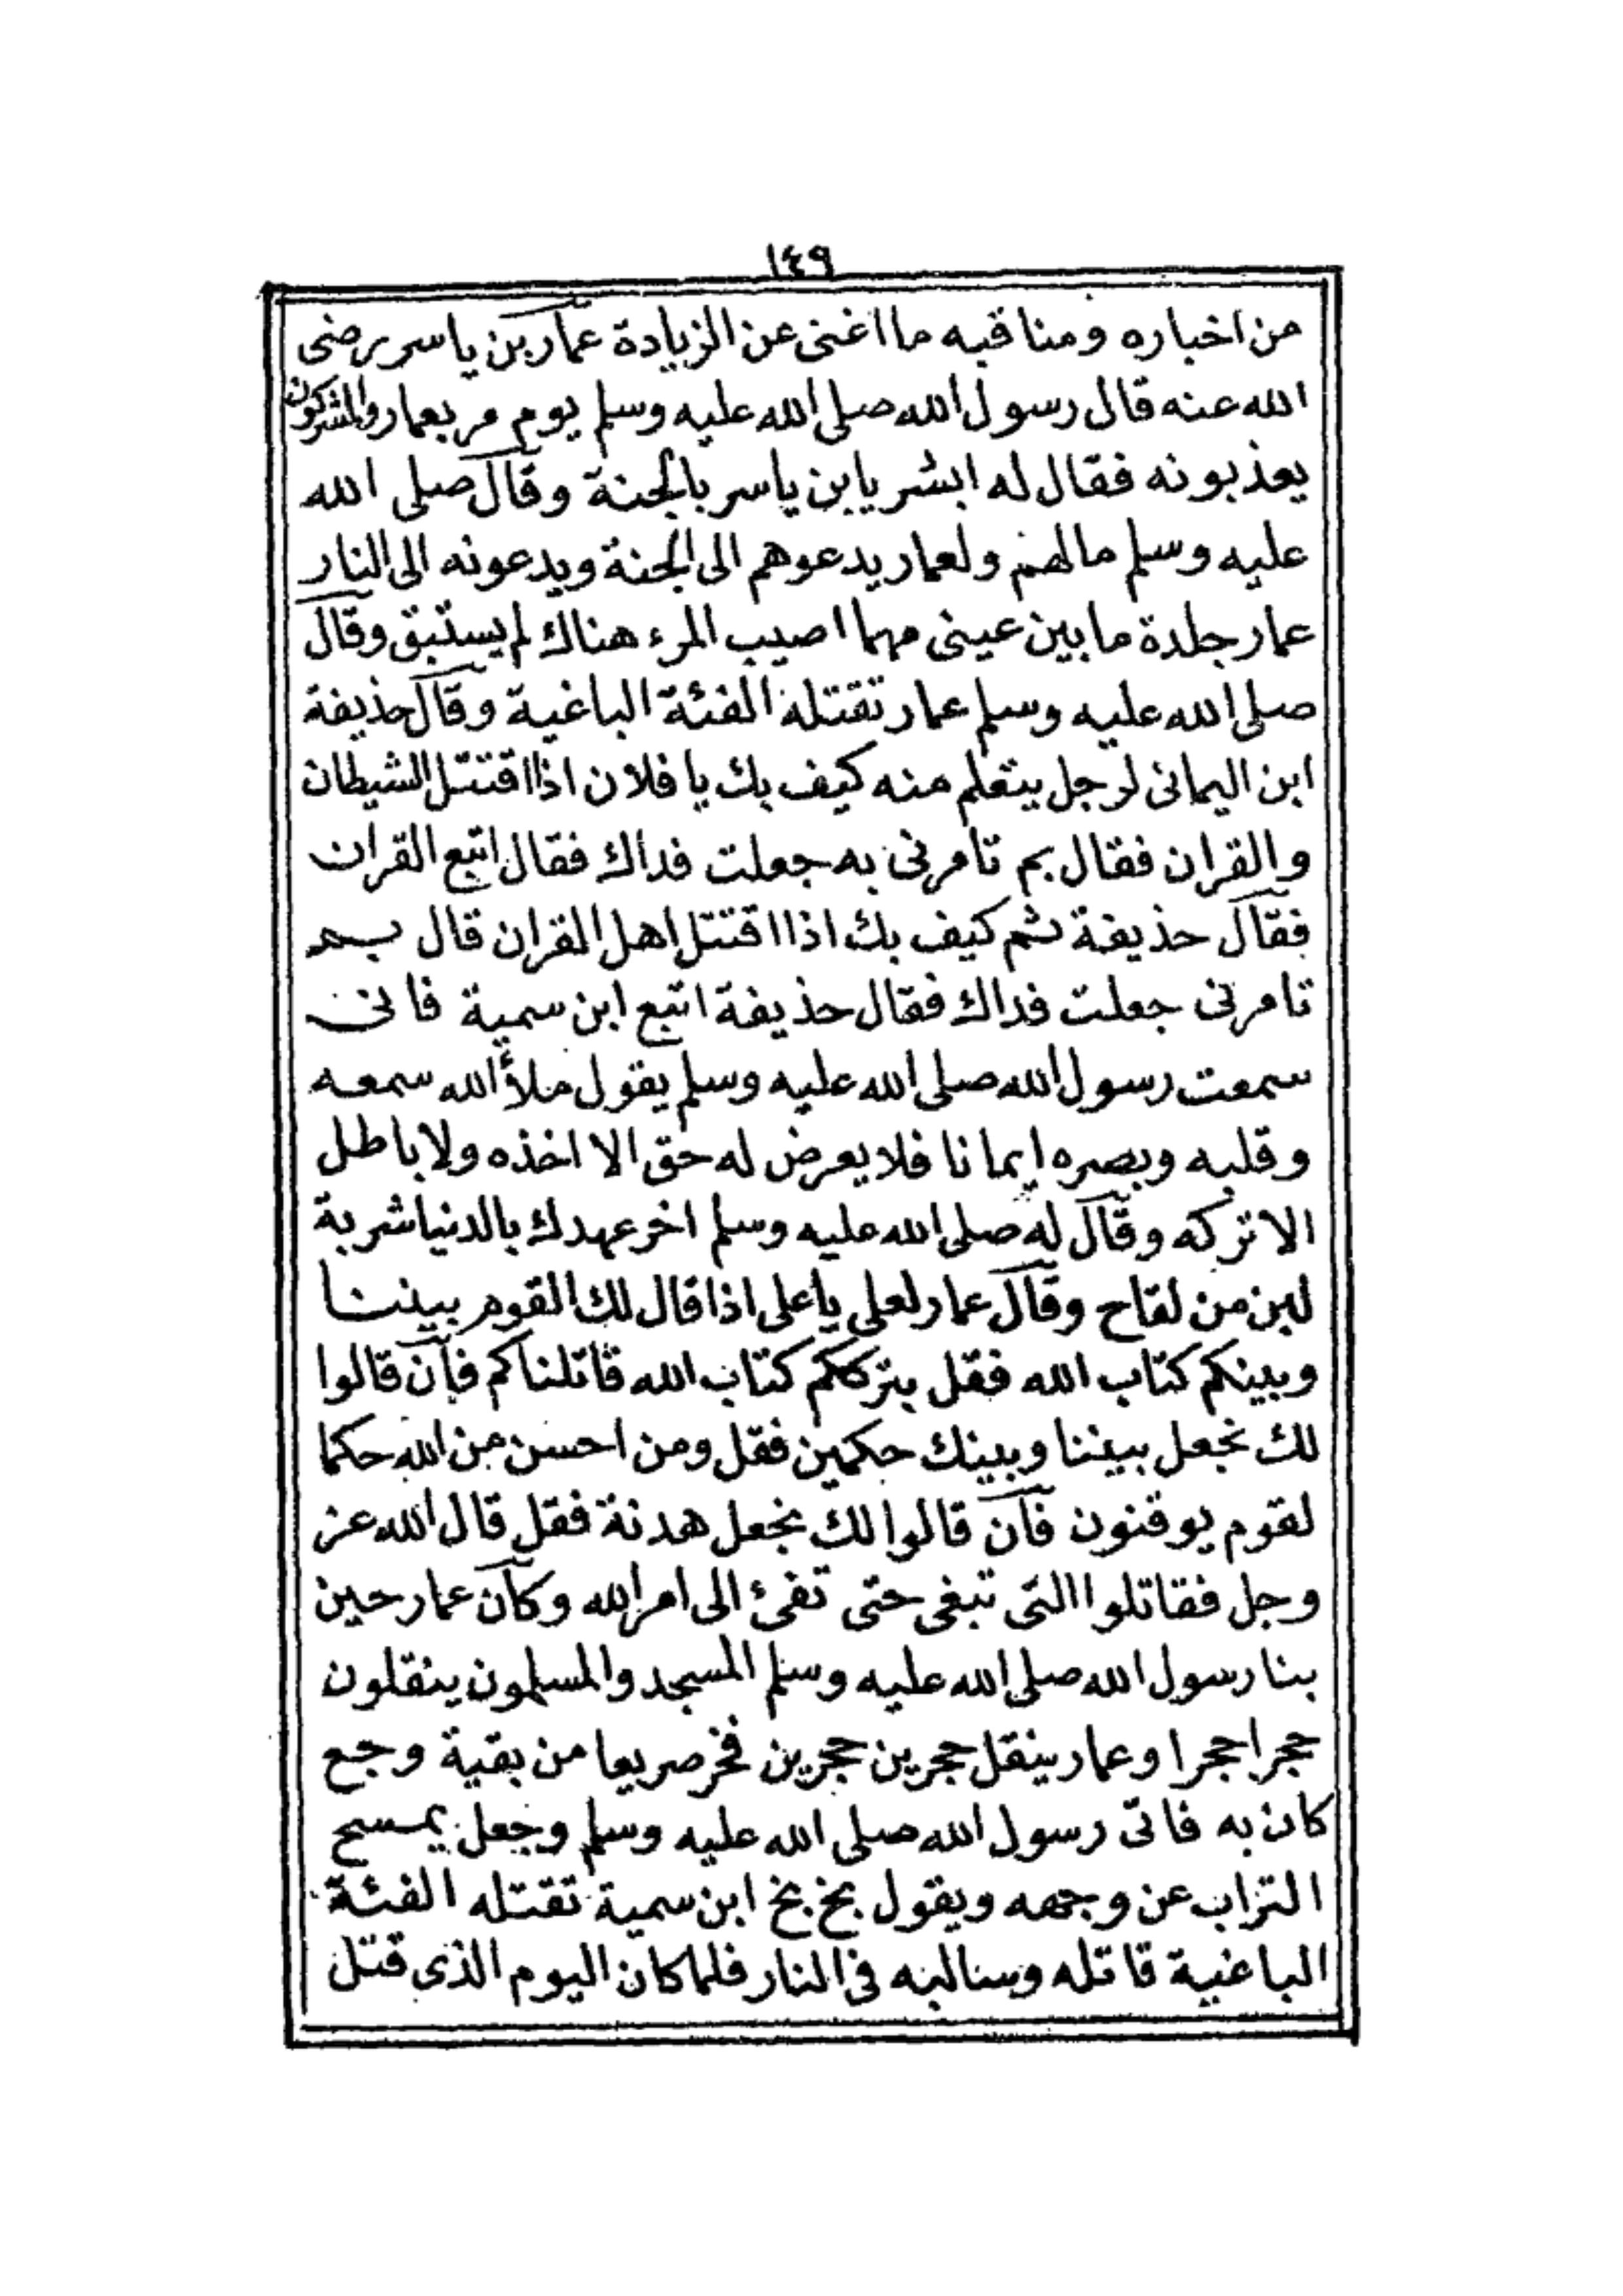 ١٤٩
من اخباره ومناقبه ما اغنى عن الزيادة عمار بن ياسر رضى
الله عنه قال رسول الله صلى الله عليه وسلم يوم مر بعمار والمشركون
يعذبونه فقال له ابشر يابن ياسر بالجنة وقال صلى الله
عليه وسلم مالهم ولعمار يدعوهم الى الجنة ويدعونه الى النار
عمار جلدة ما بين عينى مهما اصيب المرء هناك لم يستبق وقال
صلى الله عليه وسلم عمار تقتله الفئة الباغية وقال حذيفة
ابن اليمانى لرجل يتعلم منه كيف بك يا فلان اذا اقتتل الشيطان
والقران فقال بم تامرنى به جعلت فداك فقال اتبع القران
فقال حذيفة ثم كيف بك اذا اقتتل اهل القران قال بم
تامرنى جعلت فداك فقال حذيفة اتبع ابن سمية فانى
سمعت رسول الله صلى الله عليه وسلم يقول ملأ الله سمعه
وقلبه وبصره ايمانا فلا يعرض له حق الا اخذه ولا باطل
الا تركه وقال له صلى الله عليه وسلم اخر عهدك بالدنيا شربة
لبن من لقاح وقال عمار لعلى يا على اذا قال لك القوم بيننا
وبينكم كتاب الله فقل بترككم كتاب الله قاتلناكم فان قالوا
لك نجعل بيننا وبينك حكمين فقل ومن احسن من الله حكما
لقوم يوقنون فان قالوا لك نجعل هدنة فقل قال الله عز
وجل فقاتلوا التى تبغى حتى تفىء الى امر الله وكان عمار حين
بنا رسول الله صلى الله عليه وسلم المسجد والمسلمون ينقلون
حجرا حجرا وعمار ينقل حجرين حجرين فخر صريعا من بقية وجع
كان به فاتى رسول الله صلى الله عليه وسلم وجعل يمسح
التراب عن وجهه ويقول بخ بخ ابن سمية تقتله الفئة
الباغية قاتله وسالبه فى النار فلما كان اليوم الذى قتل